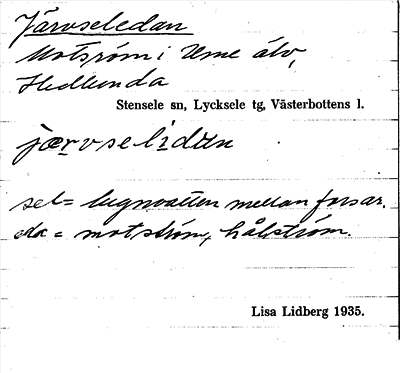 Järvseledan
Motström i Ume älv,
Hedlunda
Stensele sn, Lycksele tg, Västerbottens l.
jærvselidan
sel = lugnvatten mellan forsar.
eda = motström, hålström.
Lisa Lidberg 1935.